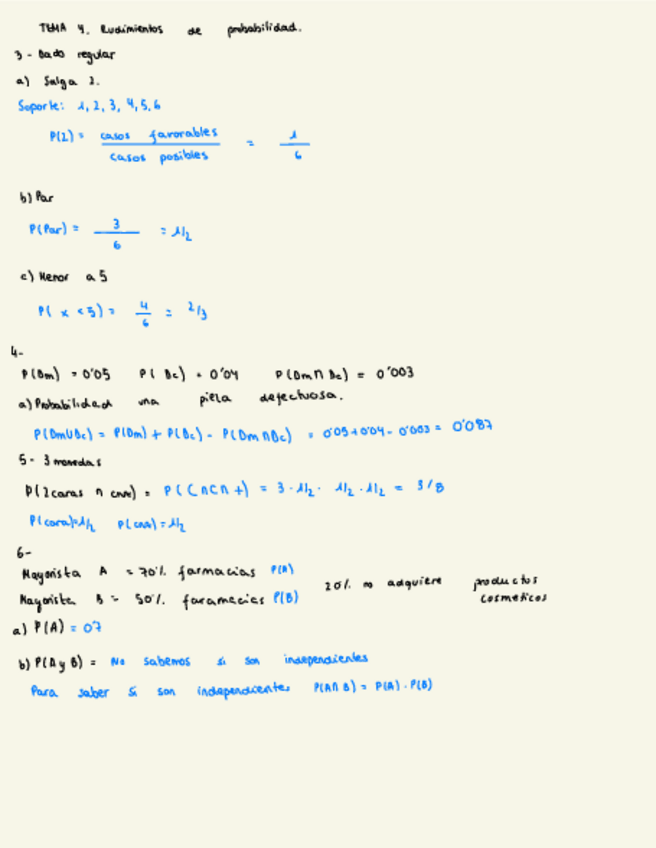 TEMA 4. Rudimientos de probabilidad.
3 - Dado regular
a) Salga 2.
Soporte: 1, 2, 3, 4, 5, 6
P(2) = casos favorables / casos posibles = 1/6
b) Par
P(Par) = 3/6 = 1/2
c) Menor a 5
P( x < 5) = 4/6 = 2/3
4-
P(Dm) = 0'05 P( Dc) = 0'04 P(Dm ∩ Dc) = 0'003
a) Probabilidad una pieza defectuosa.
P(Dm∪Dc) = P(Dm) + P(Dc) - P(Dm ∩ Dc) = 0'05+0'04 - 0'003 = 0'087
5 - 3 monedas
P(2 caras ∩ cruz) = P(C∩C∩+) = 3 · 1/2 · 1/2 · 1/2 = 3/8
P(cara)=1/2 P(cruz)=1/2
6-
Mayorista A = 70% farmacias P(A)
Mayorista B = 50% faramacias P(B) 20% no adquiere productos cosmeticos
a) P(A) = 07
b) P(A y B) = No sabemos si son independientes
Para saber si son independientes P(A∩B) = P(A) · P(B)